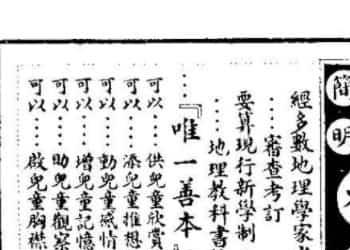 簡明
經多數地理學家
審查考訂
要算現行新學制
地理教科書
…『唯一善本
可以……供兒童欣賞
可以……添兒童推想
可以……動兒童感情
可以……增兒童記憶
可以……助兒童觀察
可以……啟兒童胸襟